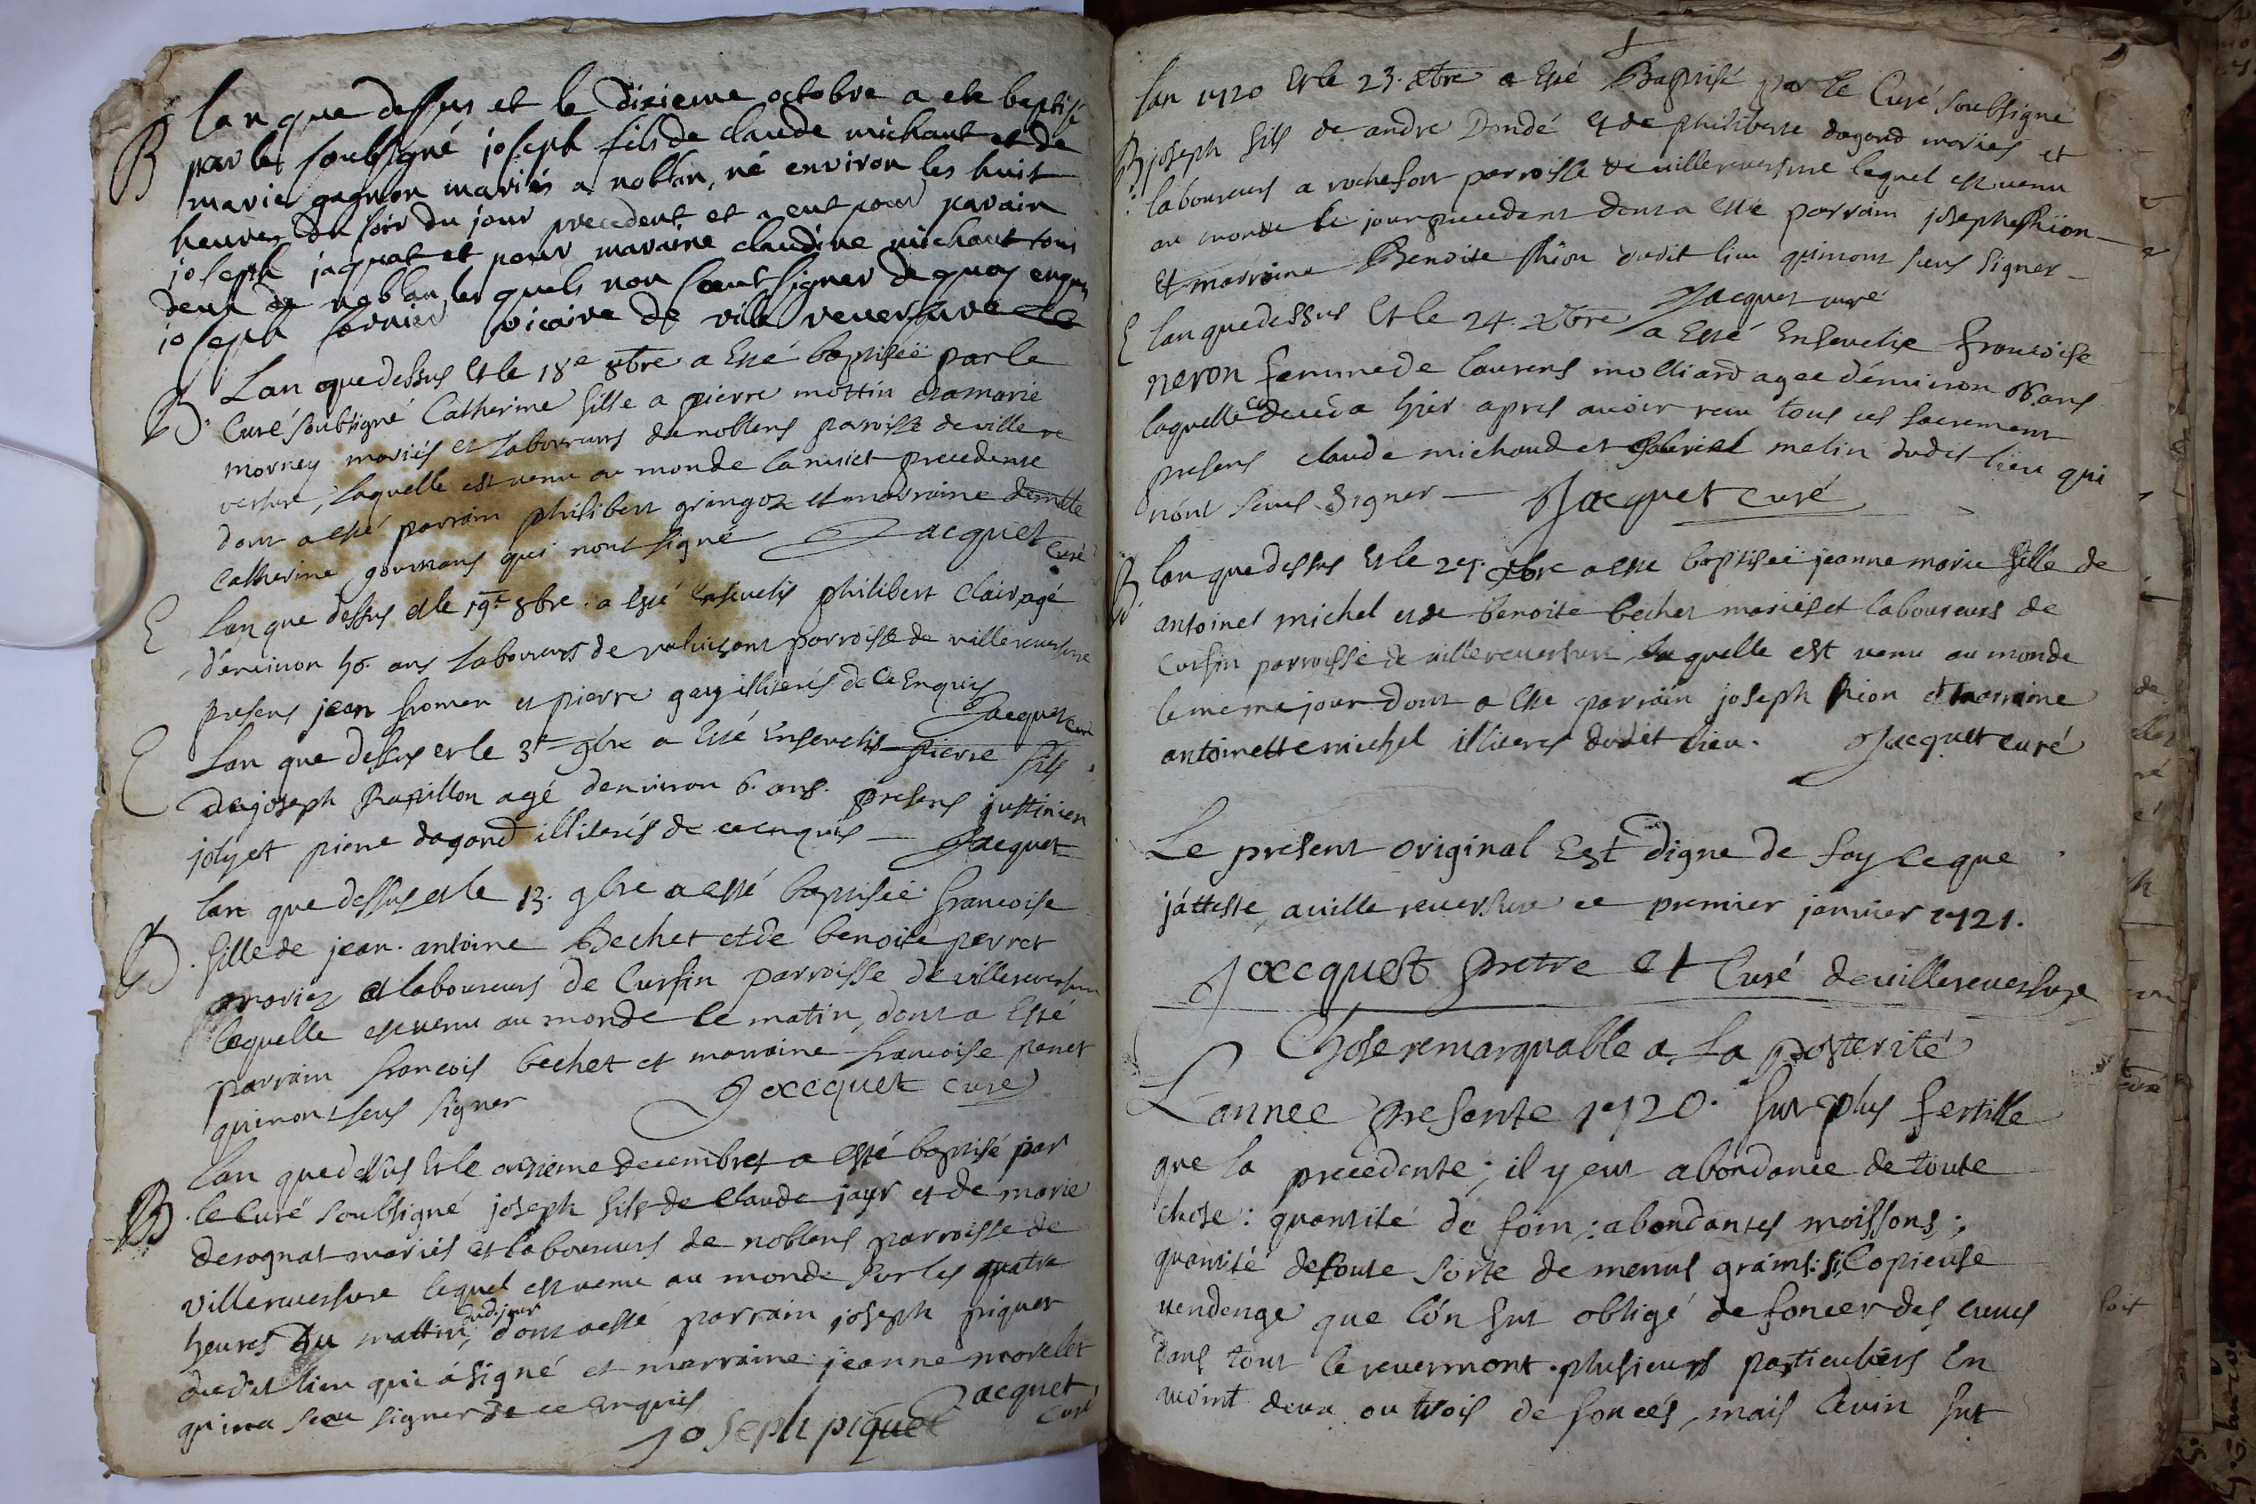 B lan que dessus et le dixieme octobre a ete baptisé
par le soubsigné joseph fils de claude michaut et de
marie gagnon mariés a noblan, né environ les huit
heures du soir du jour precedent et a eut pour parain
joseph jaquat et pour maraine claudine michaut tous
deux de noblan lesquels non sceut signer de quoy enquis
joseph vicaire de ville reversure
B. Lan que dessus et le 18e 8bre a esté baptiseë par le
Curé soubsigné Catherine fille a pierre mottin et a marie
morney mariés et laboureurs de noblens paroisse de villere
versure, laquelle est venu au monde la nuict precedente
dont a esté parrain philibert gringoz et marraine demlle
Catherine gourmans qui n'ont signé Jacquet Curé
E lan que dessus et le 19e 8bre a esté Ensevelis philibert Clair agé
d'environ 50 ans laboureurs de parroisse de villereversure
presens jean fromen et pierre gay illiterés de ce Enquis
Jacquet curé
E Lan que dessus et le 3e 9bre a esté Ensevelis pierre fils
de joseph Rapillon agé d'environ 6. ans. presens justinien
joly et pierre dagond illiterés de ce enquis Jacquet
B. lan que dessus et le 13. 9bre a esté baptiseë francoise
fille de jean. antoine Bechet et de benoite perret
mariez et laboureurs de Cursin parroisse de villereversure
laquelle est venu au monde le matin, dont a Esté
parrain francois bechet et marraine francoise perret
qui n'ont seus signer Jacquet curé
B. lan que dessus et le onzieme decembres a esté baptisé par
le Curé soubsigné joseph fils de Claude jayr et de marie
derognat mariés et laboureurs de noblens parroisse de
villereversure lequel est venu au monde sur les quatre
heures du mattin, dud. jour dont a esté parrain joseph piquet
dudit lieu qui a signé et marraine jeanne morelet
qui n'a sceu signer de ce enquis Jacquet
Joseph piquet Curé
lan 1720 et le 23. Xbre a esté Baptisé par le Curé soubsigné
B. joseph fils de andre Dondé et de philiberte dagond mariés et
laboureurs a rochefort parroisse de villereversure lequel est venu
au monde le jour precedent dont a esté parrain joseph
et marraine Benoite dudit lieu qui n'ont seus signer
Jacquet curé
E lan que dessus et le 24. Xbre a Esté Ensevelie francoise
neron femme de laurens molliard agee d'environ 66. ans
laquelle deceda hier apres avoir receu tous ces sacrement
presens claude michaud et Gabriel melin dudit lieu qui
n'ont seus signer Jacquet curé
B. lan que dessus et le 27. Xbre a esté baptiseë jeanne marie fille de
antoines michel et de benoite bechet mariés et laboureurs de
Cursin parroisse de villereversure laquelle est venu au monde
le meme jour dont a esté parrain joseph et marraine
antoinette michel illiteres dudit lieu. Jacquet curé
Le present original Est digne de foy ce que
j'atteste a ville reversure ce premier janvier 1721.
Jacquet pretre et Curé de villereversure
Chose remarquable a la posterité
L'annee presente 1720. fut plus fertille
que la precedente; il y eut abondance de toute
chose: quantité de foin; abondantes moissons;
quantité de toute sorte de menus grains: si Copieuse
vendenge que l'ón fut obligé de foncer des cuves
dans tout le revermont. plusieurs particuliers En
avoint deux ou trois de foncés, mais le vin fut